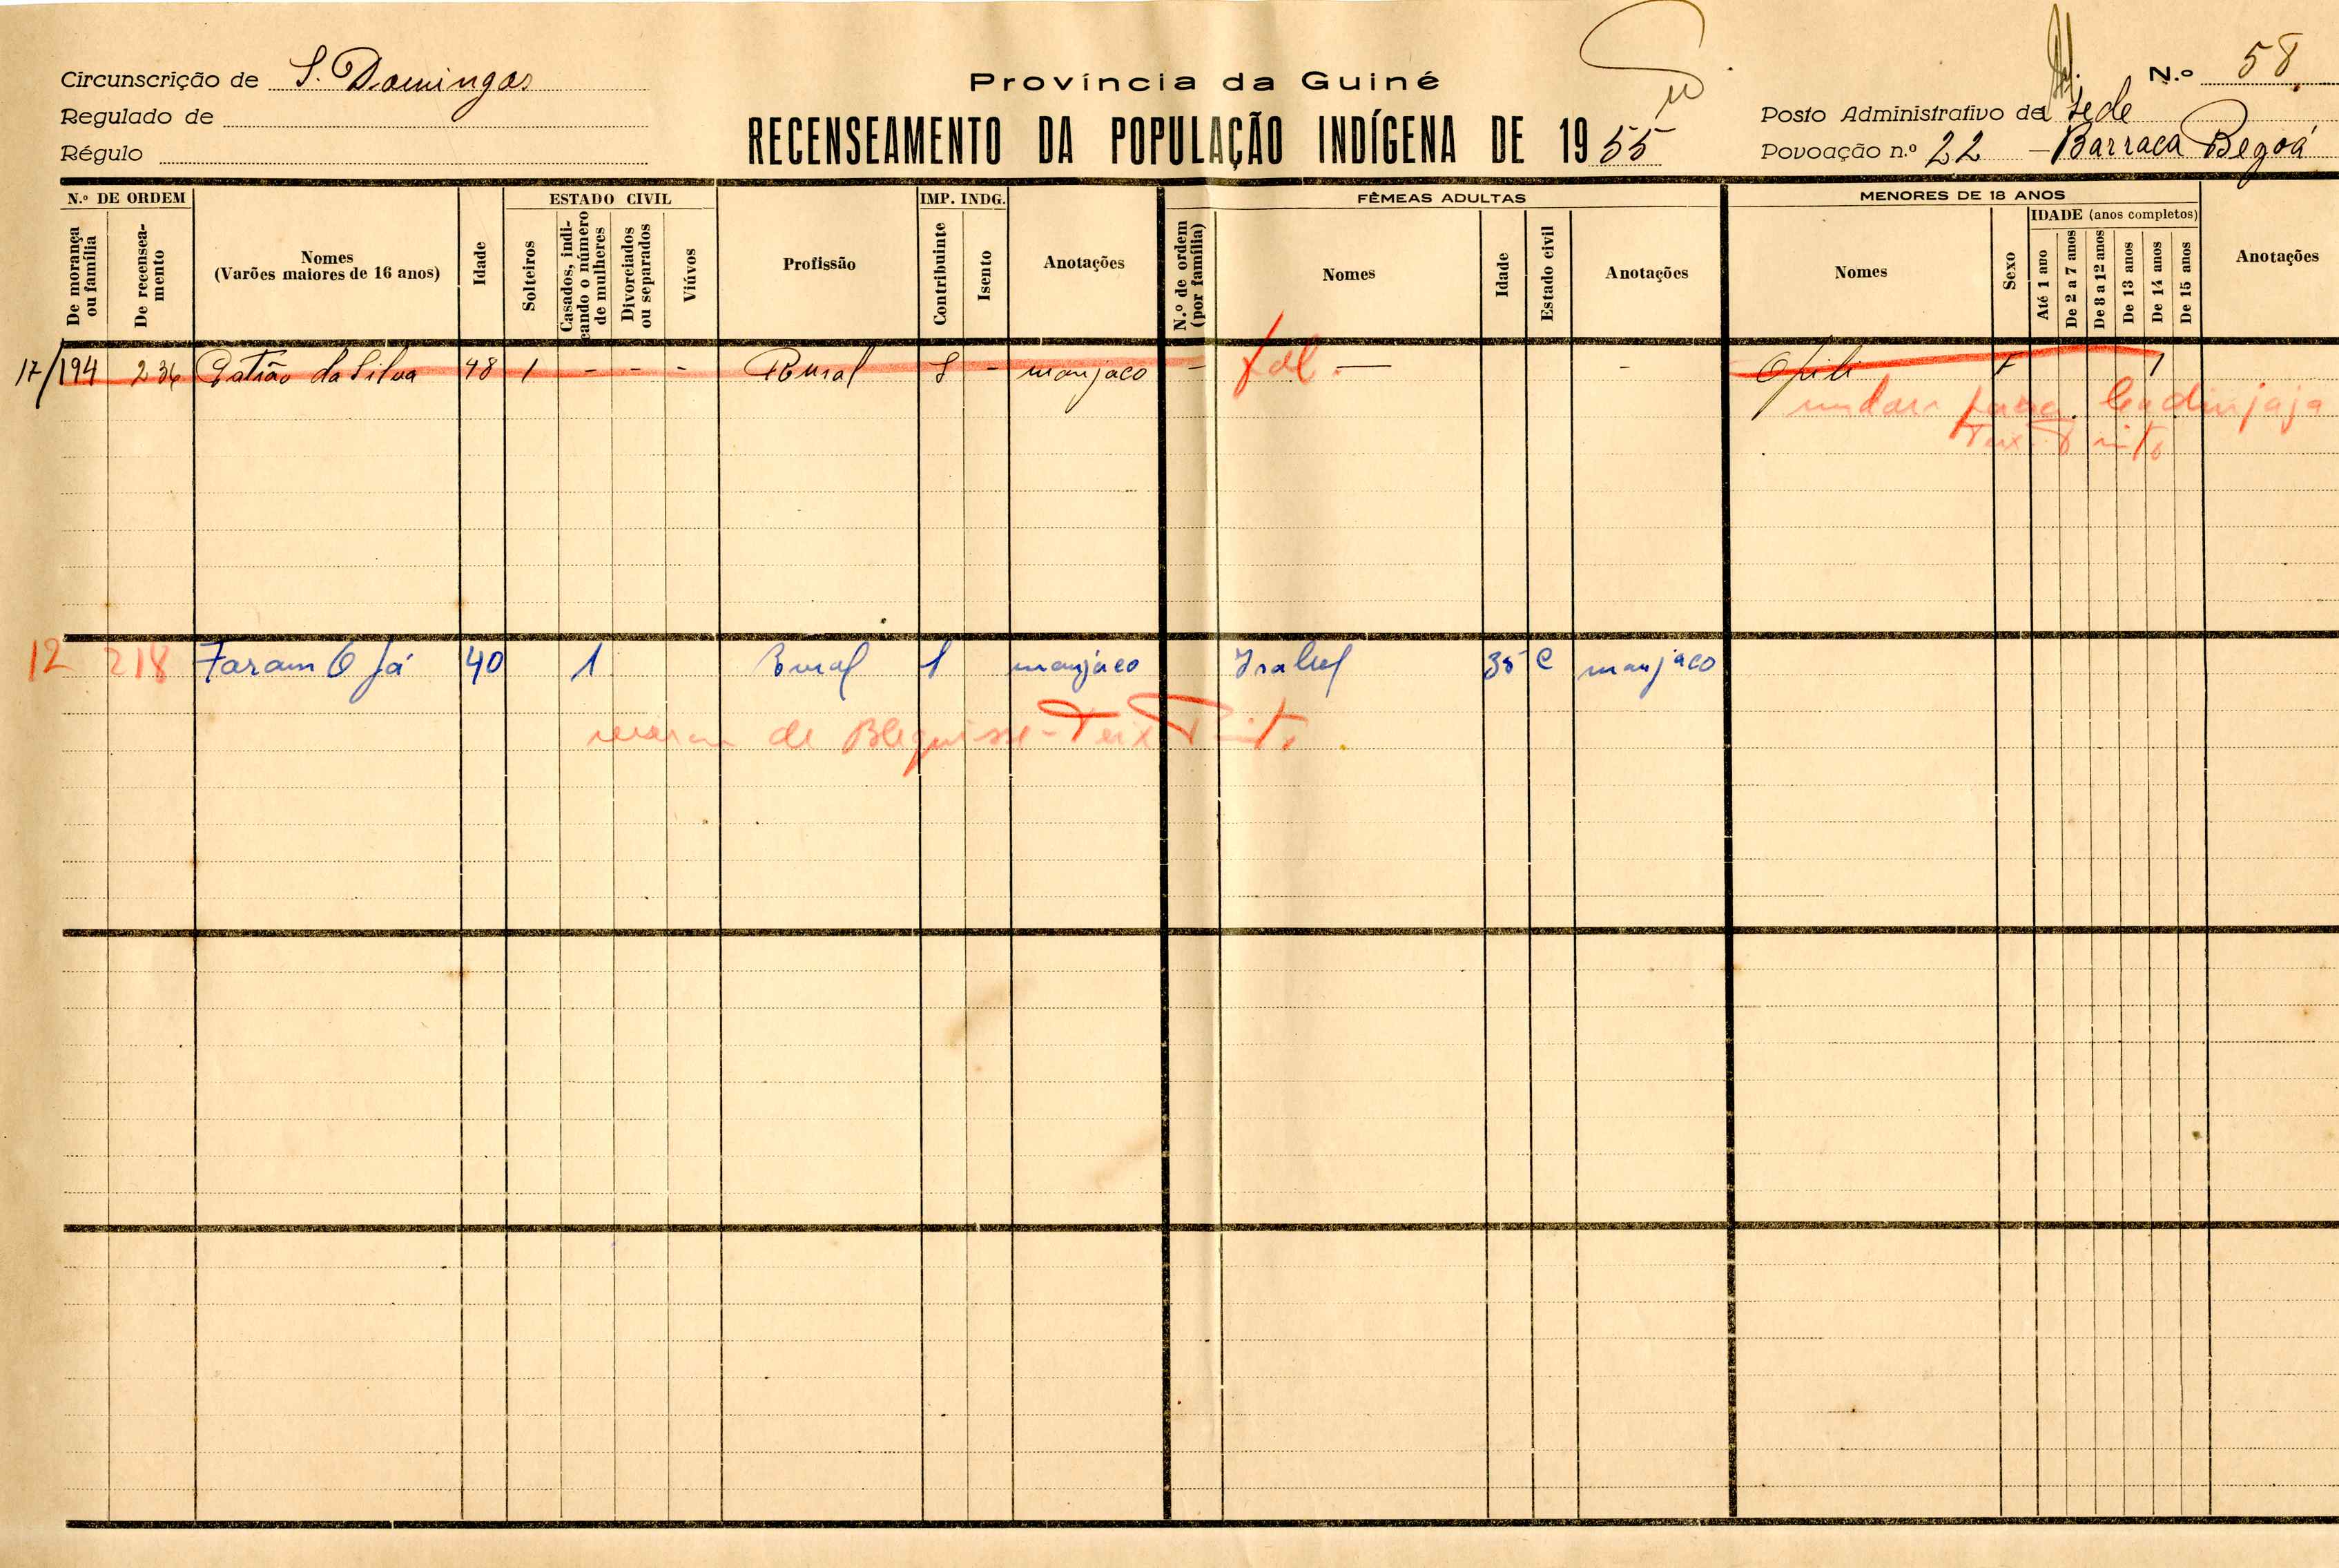 Circunscrição de S. Domingos
Regulado de
Régulo
Província da Guiné
RECENSEAMENTO DA POPULAÇÃO INDÍGENA DE 1955
N.º 58
Posto Administrativo de Sede
Povoação n.º 22 - Barraca Begoá
N.º DE ORDEM
De morança ou família
De recenseamento
Nomes
(Varões maiores de 16 anos)
Idade
ESTADO CIVIL
Solteiros
Casados, indicando o número de mulheres
Divorciados ou separados
Viúvos
Profissão
IMP. INDG.
Contribuinte
Isento
Anotações
FÊMEAS ADULTAS
N.º de ordem (por família)
Nomes
Idade
Estado civil
Anotações
MENORES DE 18 ANOS
Nomes
Sexo
IDADE (anos completos)
Até 1 ano
De 2 a 7 anos
De 8 a 12 anos
De 13 anos
De 14 anos
De 15 anos
Anotações
17/194 236 Patrão da Silva 48 1 - - - Rural 1 - manjaco - fal. - - F 1
para
12 218 Faram 40 1 Rural 1 manjaco Isabel 35 C manjaco
de Blequisse - Teix Pinto